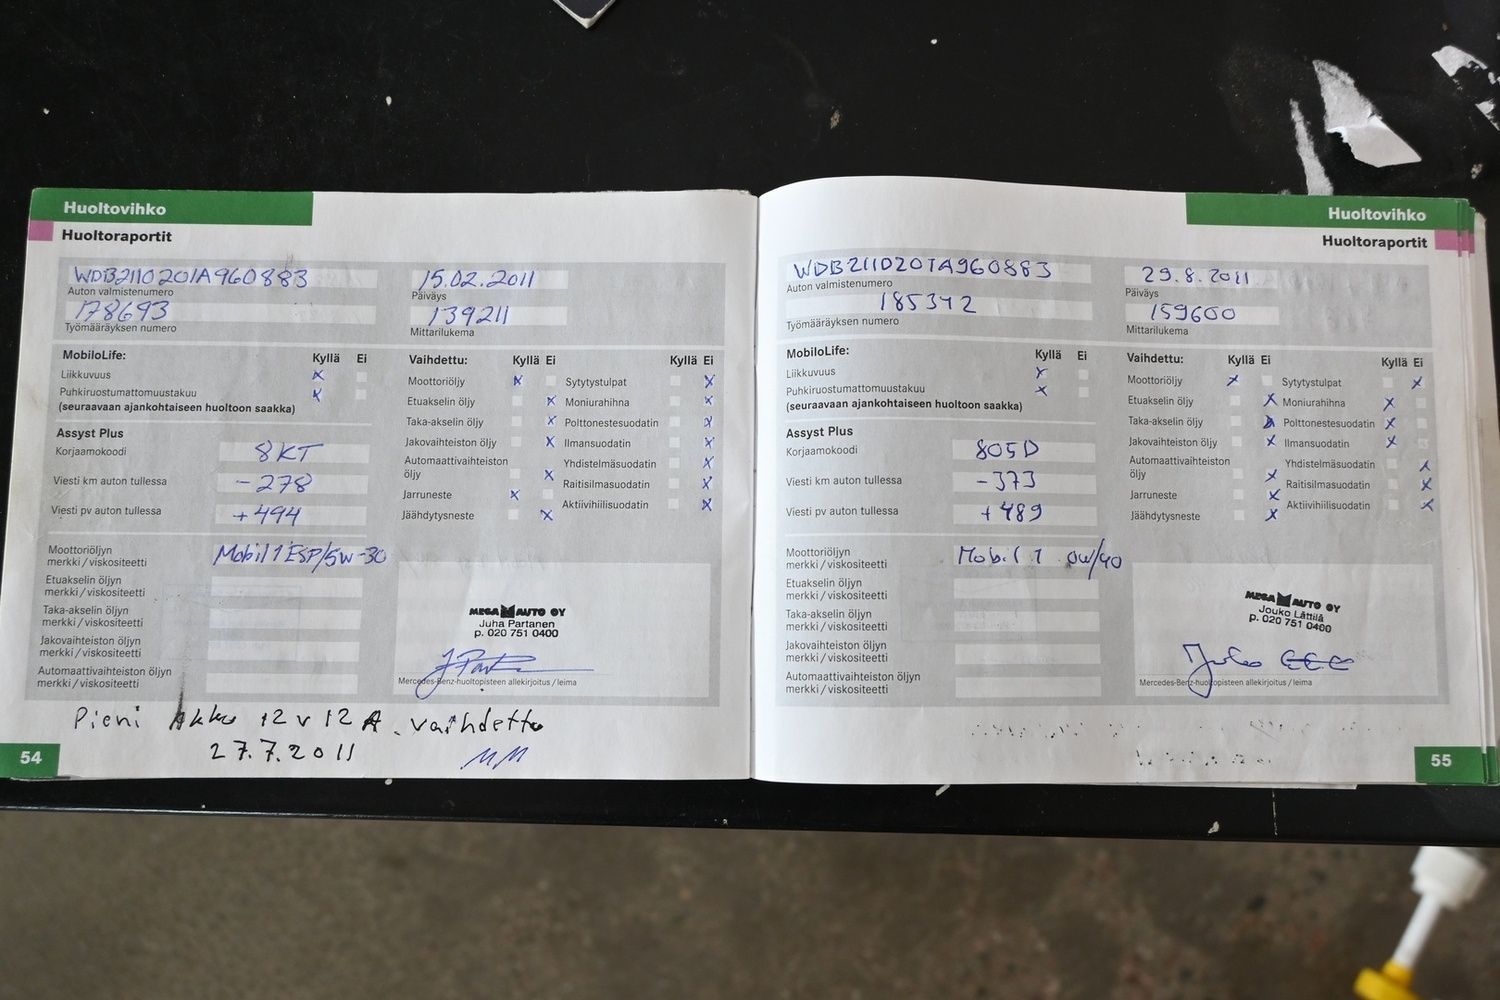 Huoltovihko
Huoltoraportit
WDB2110201A960883
Auton valmistenumero
15.02.2011
Päiväys
178693
Työmääräyksen numero
139211
Mittarilukema
MobiloLife:
Kyllä Ei
Liikkuvuus X
Puhkiruostumattomuustakuu X
(seuraavaan ajankohtaiseen huoltoon saakka)
Assyst Plus
Korjaamokoodi 8KT
Viesti km auton tullessa -278
Viesti pv auton tullessa +494
Vaihdettu: Kyllä Ei
Moottoriöljy X
Etuakselin öljy X
Taka-akselin öljy X
Jakovaihteiston öljy X
Automaattivaihteiston
öljy X
Jarruneste X
Jäähdytysneste X
Kyllä Ei
Sytytystulpat X
Moniurahihna X
Polttonestesuodatin X
Ilmansuodatin X
Yhdistelmäsuodatin X
Raitisilmasuodatin X
Aktiivihiilisuodatin X
Moottoriöljyn
merkki / viskositeetti Mobil 1 ESP/5W-30
Etuakselin öljyn
merkki / viskositeetti
Taka-akselin öljyn
merkki / viskositeetti
Jakovaihteiston öljyn
merkki / viskositeetti
Automaattivaihteiston öljyn
merkki / viskositeetti
MEGA AUTO OY
Juha Partanen
p. 020 751 0400
Mercedes-Benz-huoltopisteen allekirjoitus / leima
Pieni Akku 12 v 12 A. vaihdettu
27.7.2011 MM
54
Huoltovihko
Huoltoraportit
WDB211D20TA960883
Auton valmistenumero
29.8.2011
Päiväys
185342
Työmääräyksen numero
159600
Mittarilukema
MobiloLife:
Kyllä Ei
Liikkuvuus X
Puhkiruostumattomuustakuu X
(seuraavaan ajankohtaiseen huoltoon saakka)
Assyst Plus
Korjaamokoodi 805D
Viesti km auton tullessa -373
Viesti pv auton tullessa +489
Vaihdettu: Kyllä Ei
Moottoriöljy X
Etuakselin öljy X
Taka-akselin öljy X
Jakovaihteiston öljy X
Automaattivaihteiston
öljy X
Jarruneste X
Jäähdytysneste X
Kyllä Ei
Sytytystulpat X
Moniurahihna X
Polttonestesuodatin X
Ilmansuodatin X
Yhdistelmäsuodatin X
Raitisilmasuodatin X
Aktiivihiilisuodatin X
Moottoriöljyn
merkki / viskositeetti Mobil 1 0W/40
Etuakselin öljyn
merkki / viskositeetti
Taka-akselin öljyn
merkki / viskositeetti
Jakovaihteiston öljyn
merkki / viskositeetti
Automaattivaihteiston öljyn
merkki / viskositeetti
MEGA AUTO OY
Jouko Lättilä
p. 020 751 0400
Mercedes-Benz-huoltopisteen allekirjoitus / leima
55